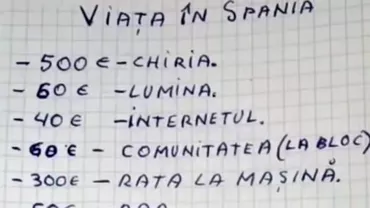 VIAȚA ÎN SPANIA
- 500 € - CHIRIA.
- 60 € - LUMINA.
- 40 € - INTERNETUL.
- 60 € - COMUNITATEA (LA BLOC)
- 300 € - RATA LA MAȘINĂ.